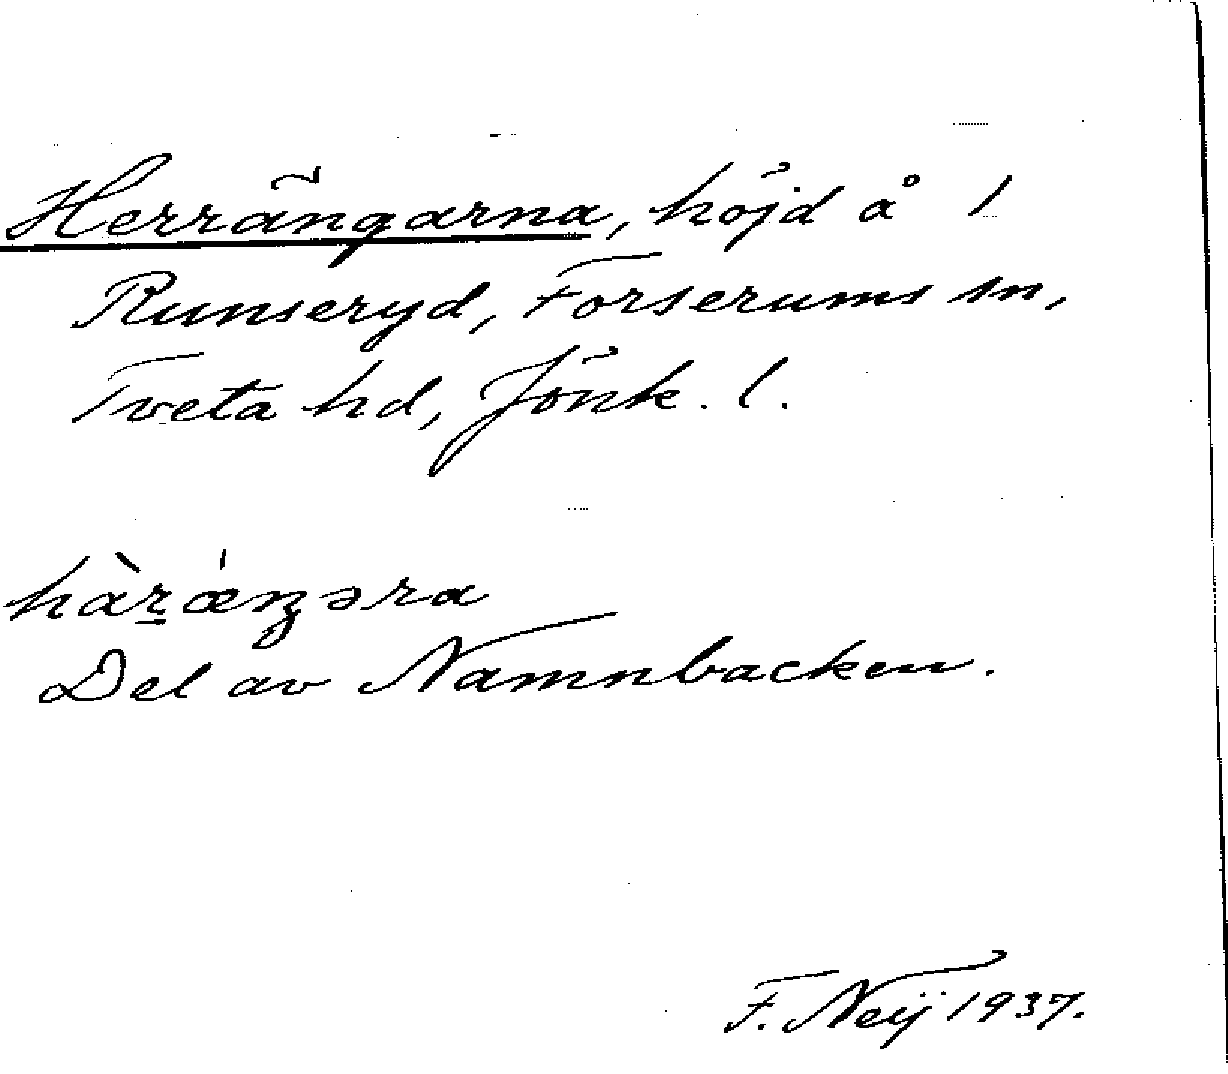 Herrängarna, höjd å 1
Runseryd, Forserums sn,
Tveta hd, Jönk. l.
hàr̲ǽŋəra
Del av Namnbacken.
F. Neij 1937.